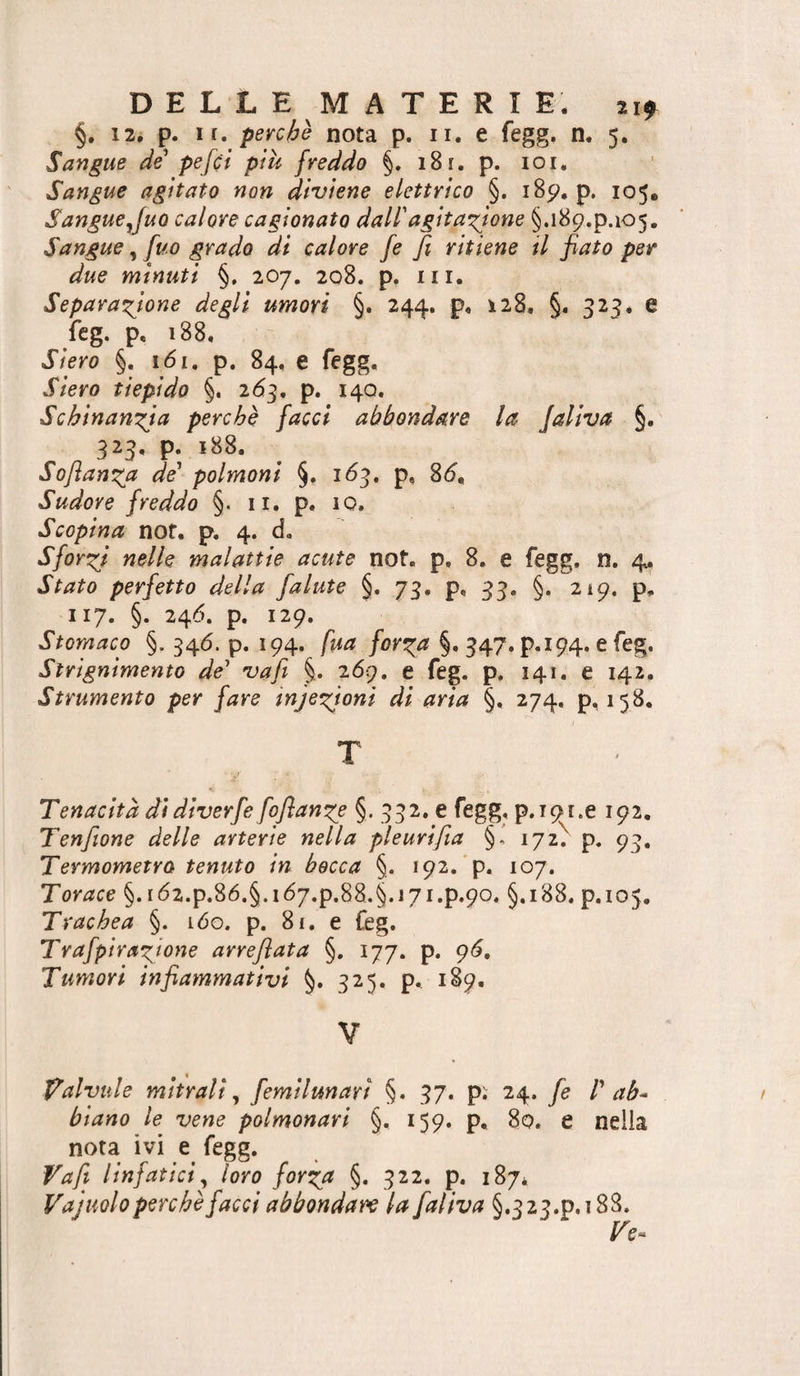 DELLE MATERIE. 219
§. 12. p. 11. perchè nota p. 11. e ſegg. n. 5.
Sangue de' peſci più freddo §. 181. p. 101.
Sangue agitato non diviene elettrico §. 189. p. 105.
Sangue, ſuo calore cagionato dall'agitazione §.189.p.105.
Sangue, ſuo grado di calore ſe ſi ritiene il fiato per
due minuti §. 207. 208. p. 111.
Separazione degli umori §. 244. p. 128. §. 323. e
ſeg. p. 188.
Siero §. 161. p. 84. e ſegg.
Siero tiepido §. 263. p. 140.
Schinanzia perchè facci abbondare la ſaliva §.
323. p. 188.
Soſtanza de' polmoni §. 163. p. 86.
Sudore freddo §. 11. p. 10.
Scopina not. p. 4. d.
Sforzi nelle malattie acute not. p. 8. e ſegg. n. 4.
Stato perfetto della ſalute §. 73. p. 33. §. 219. p.
117. §. 246. p. 129.
Stomaco §. 346. p. 194. ſua forza §. 347. p.194. e ſeg.
Strignimento de' vaſi §. 269. e ſeg. p. 141. e 142.
Strumento per fare injezioni di aria §. 274. p. 158.
T
Tenacità di diverſe ſoſtanze §. 332. e ſegg. p.191.e 192.
Tenſione delle arterie nella pleuriſia §. 172. p. 93.
Termometro tenuto in bocca §. 192. p. 107.
Torace §.162.p.86.§.167.p.88.§.171.p.90. §.188. p.105.
Trachea §. 160. p. 81. e ſeg.
Traſpirazione arreſtata §. 177. p. 96.
Tumori infiammativi §. 325. p. 189.
V
Valvule mitrali, ſemilunari §. 37. p. 24. ſe l' ab-
biano le vene polmonari §. 159. p. 80. e nella
nota ivi e ſegg.
Vaſi linfatici, loro forza §. 322. p. 187.
Vajuolo perchè facci abbondare la ſaliva §.323.p.188.
Ve-